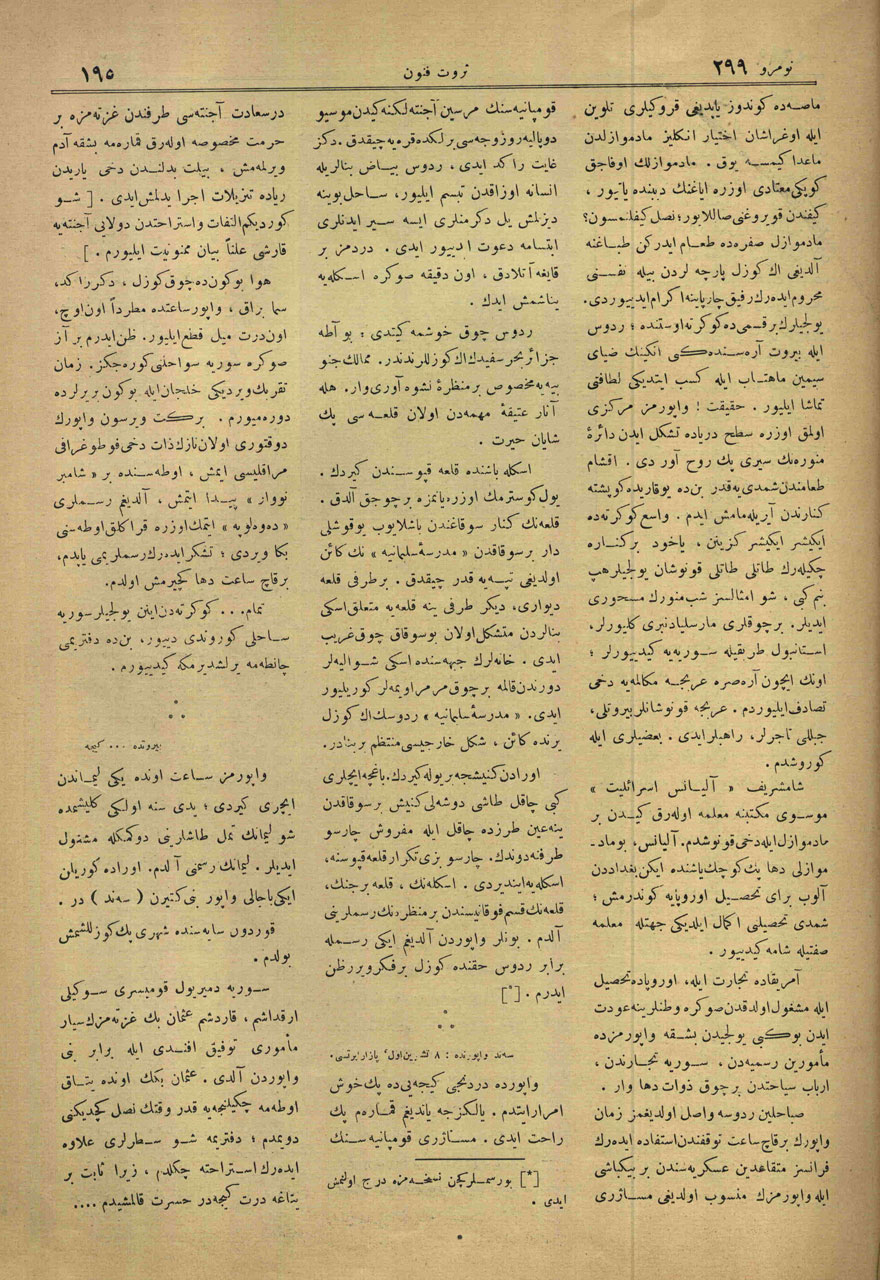 نومرو ٢٩٩
ثروت فنون
١٩٥
ماصه‌ده كوندوز یاپدیغی قروكیلری تلوین
ایله اوغراشان اختیار انكلیز مادموازلدن
ماعدا كیمسه یوق . مادموازلك اوفاجق
كوپكی معتادی اوزره ایاغنك دیبنده یاتیور ،
كیفندن قویروغنی صاللایور؛ نصل كیفلنمسون؟
مادموازل صفره‌ده طعام ایدركن طباغنه
آلدیغی اك كوزل پارچه لردن بیله؛ نفسنی
محروم ایده‌رك رفیق چارپاینه اكرام ایدییوردی.
یولجیلرك برقسمی ده كوكرته اوستنده ؛ ردوس
ایله بیروت آره‌سنده‌كی انكینك ضیای
سیمین ماهتاب ایله كسب ایتدیكی لطافتی
تماشا ایلیور . حقیقت ! واپورمز مركزی
اولمق اوزره سطح دریاده تشكل ایدن دائرهٔ
منوره‌نك سیری پك روح آور دی . اقشام
طعامندن شمدی‌یه قدر بن‌ده یوقاریده كوپشته
كنارندن آیریله‌مامش ایدم . واسع كوكرته‌ده
ایكیشر ایكیشر كزینن ، یاخود بركناره
چكیله‌رك طاتلی طاتلی قونوشان یولجیلر هپ
بنم كبی ، شو امثالسز شب منورك مسحوری
ایدیلر. برچوقلری مارسیلیادنبری كلیورلر،
استانبول طریقیله سوریه‌یه كیدییورلر ؛
اونك ایچون آره‌صره عربجه مكالمه‌یه دخی
تصادف ایلیوردم . عربجه قونوشانلر بیروتلی،
جبللی تاجرلر، راهبلر ایدی . بعضیلری ایله
كوروشدم .
شام شریف « آلیانس اسرائلیت »
موسوی مكتبنه معلمه اوله‌رق كیدن بر
مادموازل ایله دخی قونوشدم. آلیانس، بوماد-
موازلی دها پك كوچك یاشنده ایكن بغداددن
آلوب برای تحصیل اوروپایه كوندرمش ؛
شمدی تحصیلنی اكمال ایلدیكی جهتله معلمه
صفتیله شامه كیدییور .
آمریقاده تجارت ایله، اوروپاده تحصیل
ایله مشغول اولدقدن صوكره وطنلرینه عودت
ایدن بوكبی یولجیدن بشقه واپورمزده
مأمورین رسمیه‌دن ، سوریه تجارندن ،
ارباب سیاحتدن برچوق ذوات دها وار .
صباحلین ردوسه واصل اولدیغمز زمان
واپورك برقاچ ساعت توقفندن استفاده ایده‌رك
فرانسز متقاعدین عسكریه‌سندن بر بیكباشی
ایله واپورمزك منسوب اولدیغی مساژری
قومپانیه‌سنك مرسین آجنته‌لكنه كیدن موسیو
دوپالیه‌روزوجه‌سی برلكده قره‌یه چیقدق . دكز
غایت راكد ایدی ، ردوس بیاض بنالریله
انسانه اوزاقدن تبسم ایلیور، ساحل بوینه
دیزلمش یل دكرمنلری ایسه سیر ایدنلری
ابتسامه دعوت ادییور ایدی . دردمز بر
قایغه آتلادق ، اون دقیقه صوكره اسكله‌یه
یناشمش ایدك .
ردوس چوق خوشمه كیتدی : بو آطه
جزائر بحر سفیدك اك كوزللرندندر. ممالك جنو
بیه‌یه مخصوص برمنظرهٔ نشوه آوری وار. هله
آثار عتیقهٔ مهمه‌دن اولان قلعه‌سی پك
شایان حیرت .
اسكله باشنده قلعه قپوسندن كیردك .
یول كوسترمك اوزره یانمزه برچوجق آلدق .
قلعه‌نك كنار سوقاغندن باشلایوب یوقوشلی
دار برسوقاقدن « مدرسهٔ سلیمانیه » نك كائن
اولدیغی تپه‌یه قدر چیقدق . برطرفی قلعه
دیواری، دیكر طرفی ینه قلعه‌یه متعلق اسكی
بنالردن متشكل اولان بوسوقاق چوق غریب
ایدی . خانه‌لرك جبهه‌سنده اسكی شوالیه‌لر
دورندن قالمه برچوق مرمر اویمه‌لر كوریلیور
ایدی. « مدرسهٔ سلیمانیه » ردوسك اك كوزل
یرنده كائن ، شكل خارجیسی منتظم بربنادر.
اورادن كنیشجه بریوله كیردك. باغچه ایچلری
كبی چاقل طاشی دوشه‌لی كنیش برسوقاقدن
ینه‌عین طرزده چاقل ایله مفروش چارسو
طرفنه دوندك. چارسو بزی تكرار قلعه قپوسنه،
اسكله‌یه ایندیردی . اسكله‌نك ، قلعه برجنك،
قلعه‌نك قسم فوقانیسندن برمنظره‌نك رسملرینی
آلدم . بونلر واپوردن آلدیغم ایكی رسمله
برابر ردوس حقنده كوزل برفكر ویرر ظن
ایدرم . [*]
*
* *
سه‌ند واپورنده : ٨ تشرین اول ، پازارایرتسی.
واپورده دردنجی كیجه‌یی ده پك خوش
امرار ایتدم . یالكزجه یاتدیغم قماره‌م پك
راحت ایدی . مساژری قومپانیه‌سنك
[*] بو رسملر كچن نسخه‌مزده درج اولنمش
ایدی .
درسعادت آجنته‌سی طرفندن غزته‌مزه بر
حرمت مخصوصه اوله‌رق قماره‌مه بشقه آدم
ویرلمه‌مش ، بیلت بدلندن دخی یاریدن
زیاده تنزیلات اجرا یدلمش ایدی . [ شو
كوردیكم التفات واستراحتدن دولایی آجنته‌یه
قارشی علناً بیان ممنونیت ایلیورم . ]
هوا بوكون‌ده چوق كوزل ، دكز راكد،
سما براق ، واپور ساعتده مطرداً اون اوچ،
اون درت میل قطع ایلیور. ظن ایدرم بر آز
صوكره سوریه سواحلنی كوره‌جكز. زمان
تقربك ویردیكی خلجان ایله بوكون بریرلرده
دوره‌میورم . بركت ویرسون واپورك
دوقتوری اولان نازك ذات دخی فوطوغرافی
مراقلیسی ایمش ، اوطه‌سنده بر « شامبر
نوواز » پیدا ایتمش ، آلدیغم رسملری
« ده‌وه‌لوپه » ایتمك اوزره قراكلق اوطه‌سنی
بكا ویردی ؛ تشكر ایده‌رك رسملریمی یاپدم،
برقاچ ساعت دها كچیرمش اولدم.
تمام... كوكرته‌دن اینن یولجیلر سوریه
ساحلی كوروندی دییور، بن‌ده دفتریمی
چانطه‌مه یرلشدیرمكه كیدییورم .
*
* *
بیروتده ... كیجه
واپورمز ساعت اونده یكی لیماندن
ایچری كیردی ؛ یدی سنه اولكی كلیشمده
شو لیمانك تمل طاشلرینی دوكمكله مشغول
ایدیلر . لیمانك رسمنی آلدم. اوراده كوریان
ایكی باجالی واپور بنی كتیرن ( سه‌ند ) در .
قوردون سایه‌سنده شهری پك كوزللشمش
بولدم .
سوریه دمیریول قومیسری سوكیلی
ارقداشم ، قاردشم عثمان بك غزته‌مزك سیار
مأموری توفیق افندی ایله برابر بنی
واپوردن آلدی . عثمان بكك اونده یتاق
اوطه‌مه چكیلنجه‌یه قدر وقتك نصل كچدیكنی
دویمدم ؛ دفتریمه شو سطرلری علاوه
ایده‌رك استراحته چكلدم ، زیرا ثابت بر
یتاغه درت كیجه‌در حسرت قالمشیدم ....